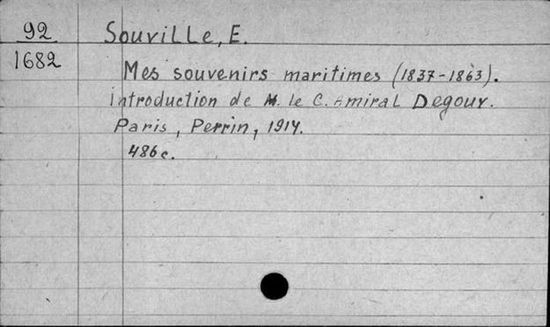 92 Souville, E.
1682
Mes souvenirs maritimes (1837-1863).
introduction de M. le C. Amiral Degouy.
Paris, Perrin, 1914.
486c.